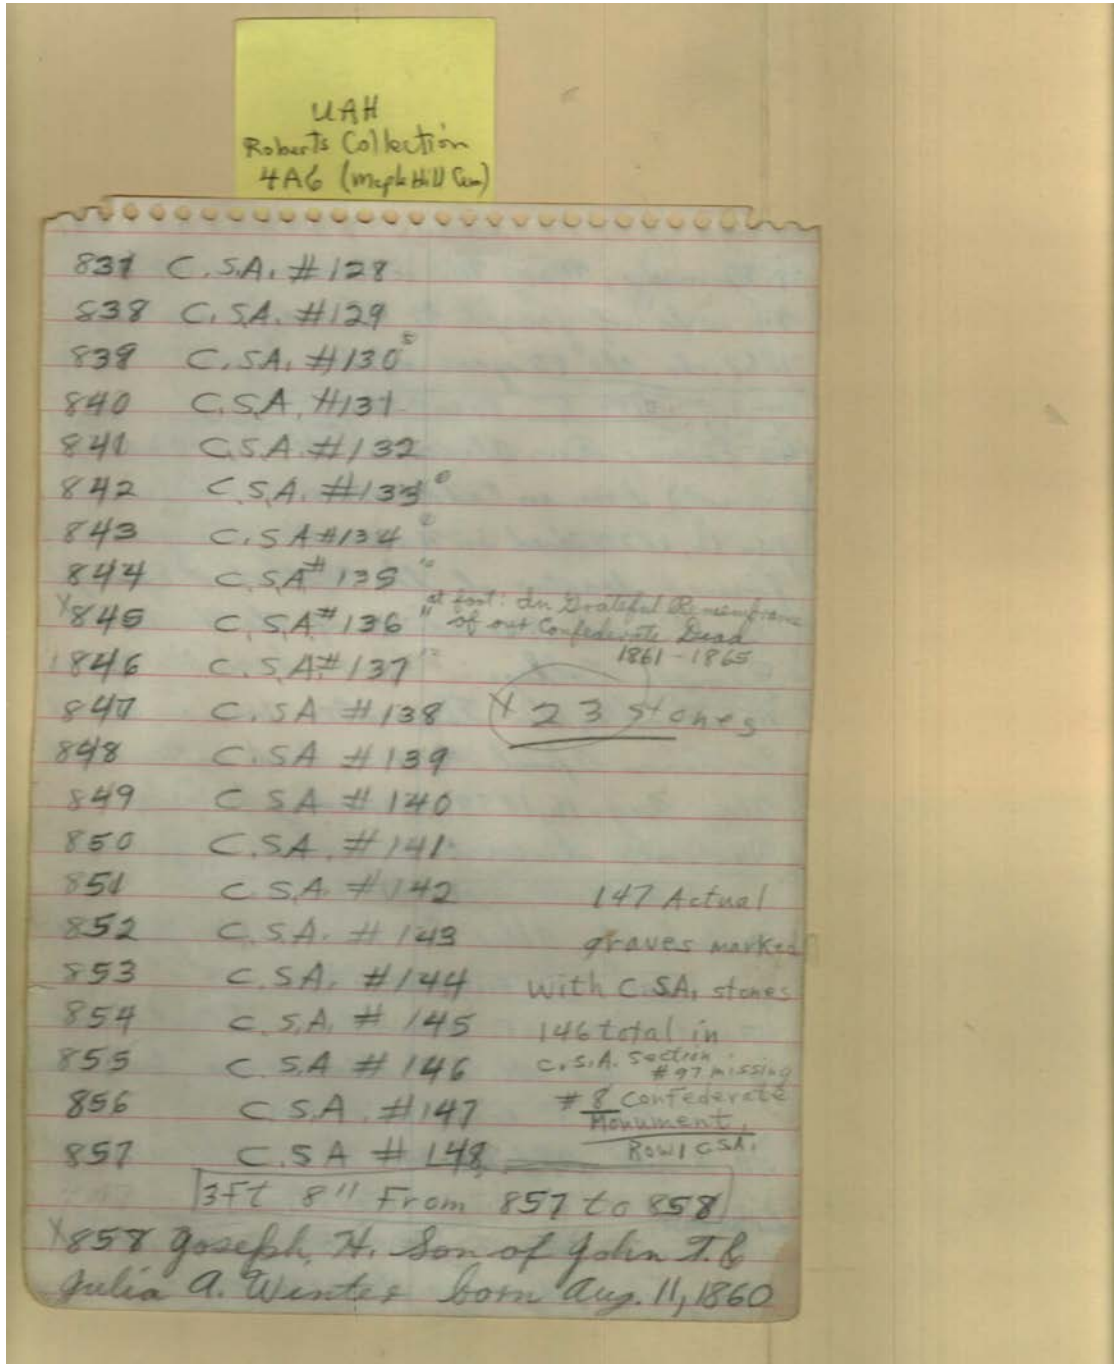 UAH
Roberts Collection
4A6 (Maple Hill Cem)
837 C.S.A. #128
838 C.S.A. #129
839 C.S.A. #130
840 C.S.A. #131
841 C.S.A. #132
842 C.S.A. #133
843 C.S.A #134
844 C.S.A # 135 "
X845 C.S.A # 136 " at foot: In Grateful Remembrance
of our Confederate Dead
1861 - 1865
846 C.S.A. # 137 "
847 C.S.A # 138 X 23 stones
848 C.S.A # 139
849 C S A # 140
850 C.S.A. # 141
851 C.S.A. # 142 147 Actual
852 C.S.A. # 143 graves marked
853 C.S.A. # 144 with C.S.A. stones
854 C.S.A. # 145 146 total in
855 C.S.A # 146 C.S.A. section
#97 missing
856 C.S.A. # 147 # 8 Confederate
Monument,
857 C.S.A # 148 Row 1 CSA.
3Ft 8" From 857 to 858
X858 Joseph, H. Son of John T. &
Julia A. Winter born Aug. 11, 1860